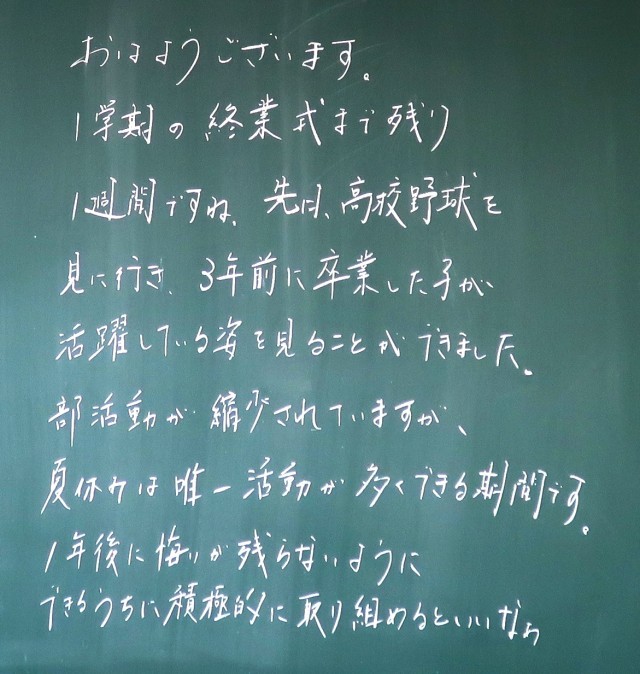 おはようございます。
1学期の終業式まで残り
1週間ですね。先日、高校野球を
見に行き、3年前に卒業した子が、
活躍している姿を見ることができました。
部活動が縮少されていますが、
夏休みは唯一活動が多くできる期間です。
1年後に悔いが残らないように
できるうちに積極的に取り組めるといいなぁ